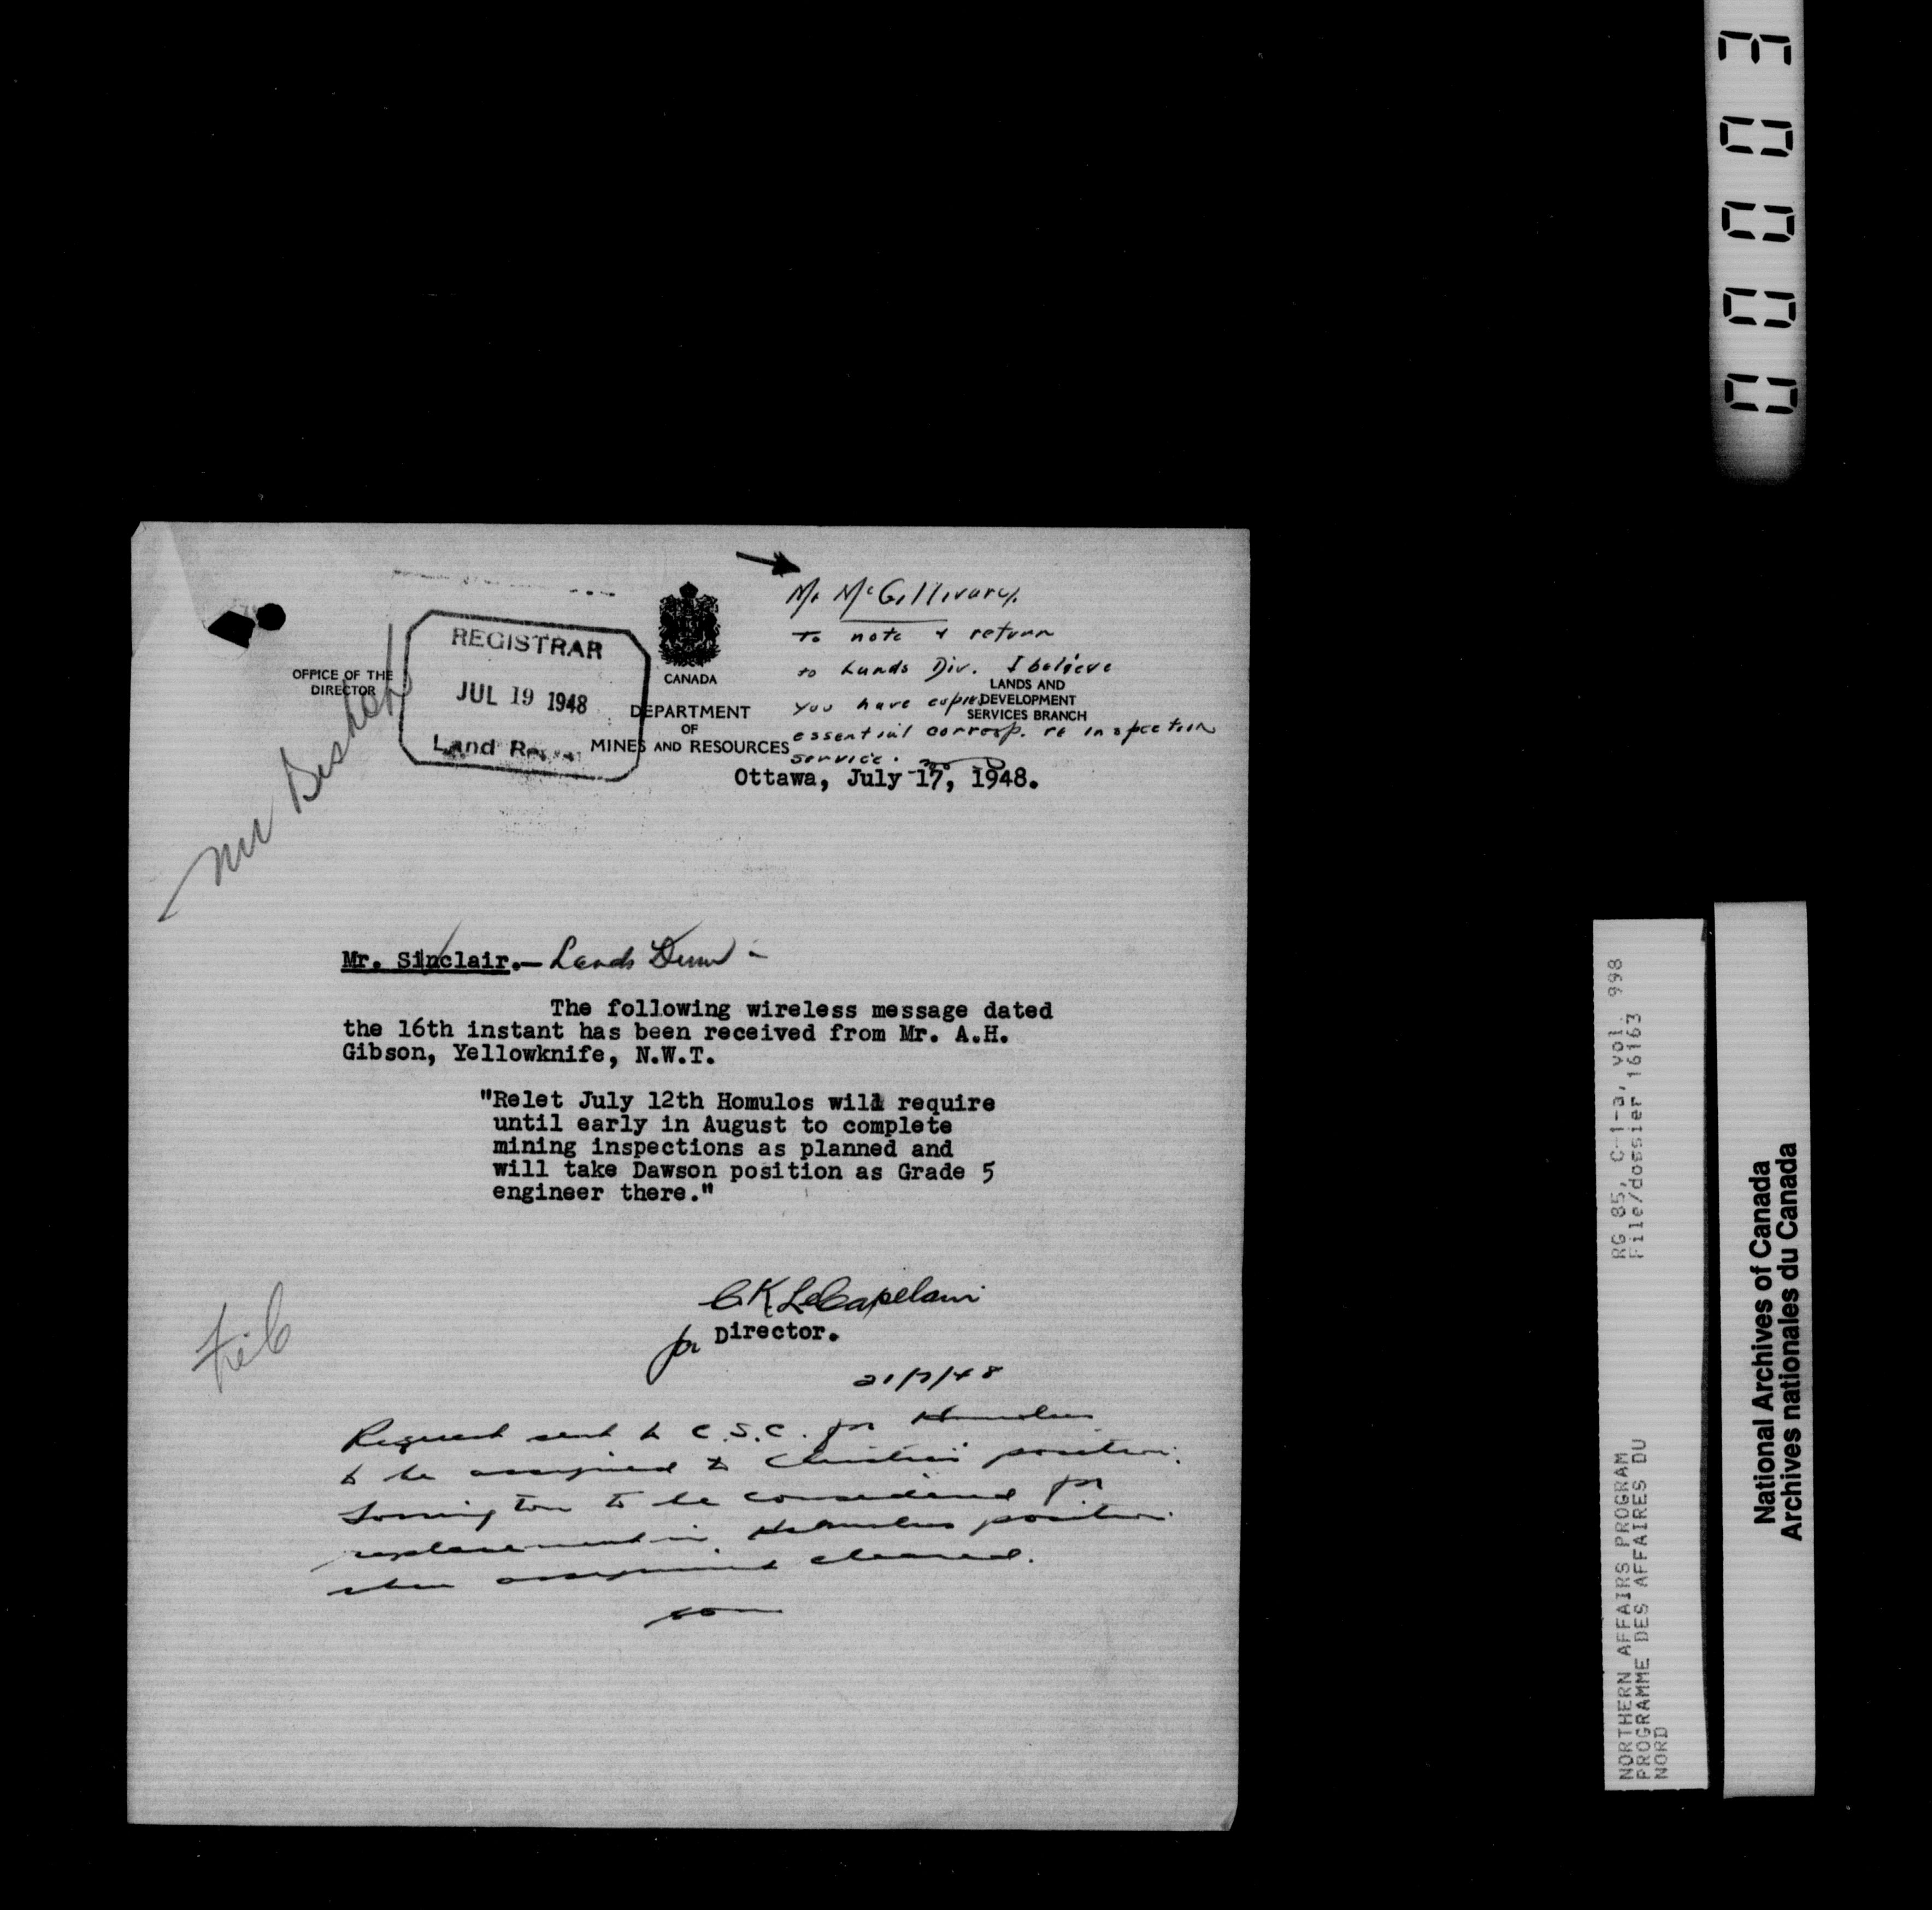 Mr McGillivary.
To note & return
to Lands Div. I believe
you have copied
essential corresp. re inspection
service.
REGISTRAR
JUL 19 1948
Land
OFFICE OF THE
DIRECTOR
CANADA
DEPARTMENT
OF
MINES AND RESOURCES
LANDS AND
DEVELOPMENT
SERVICES BRANCH
Mr Bishop
Ottawa, July 17, 1948.
Mr. Sinclair.- Lands
The following wireless message dated
the 16th instant has been received from Mr. A.H.
Gibson, Yellowknife, N.W.T.
"Relet July 12th Homulos will require
until early in August to complete
mining inspections as planned and
will take Dawson position as Grade 5
engineer there."
C K LeCapelain
for Director.
File
21/7/48
Request sent to C.S.C. for Homulos
to be assigned to position.
to be considered for
replacement in Homulos position
when assignment cleared.
00003
RG 85, C-1-a, vol. 998
File/dossier 16163
NORTHERN AFFAIRS PROGRAM
PROGRAMME DES AFFAIRES DU
NORD
National Archives of Canada
Archives nationales du Canada